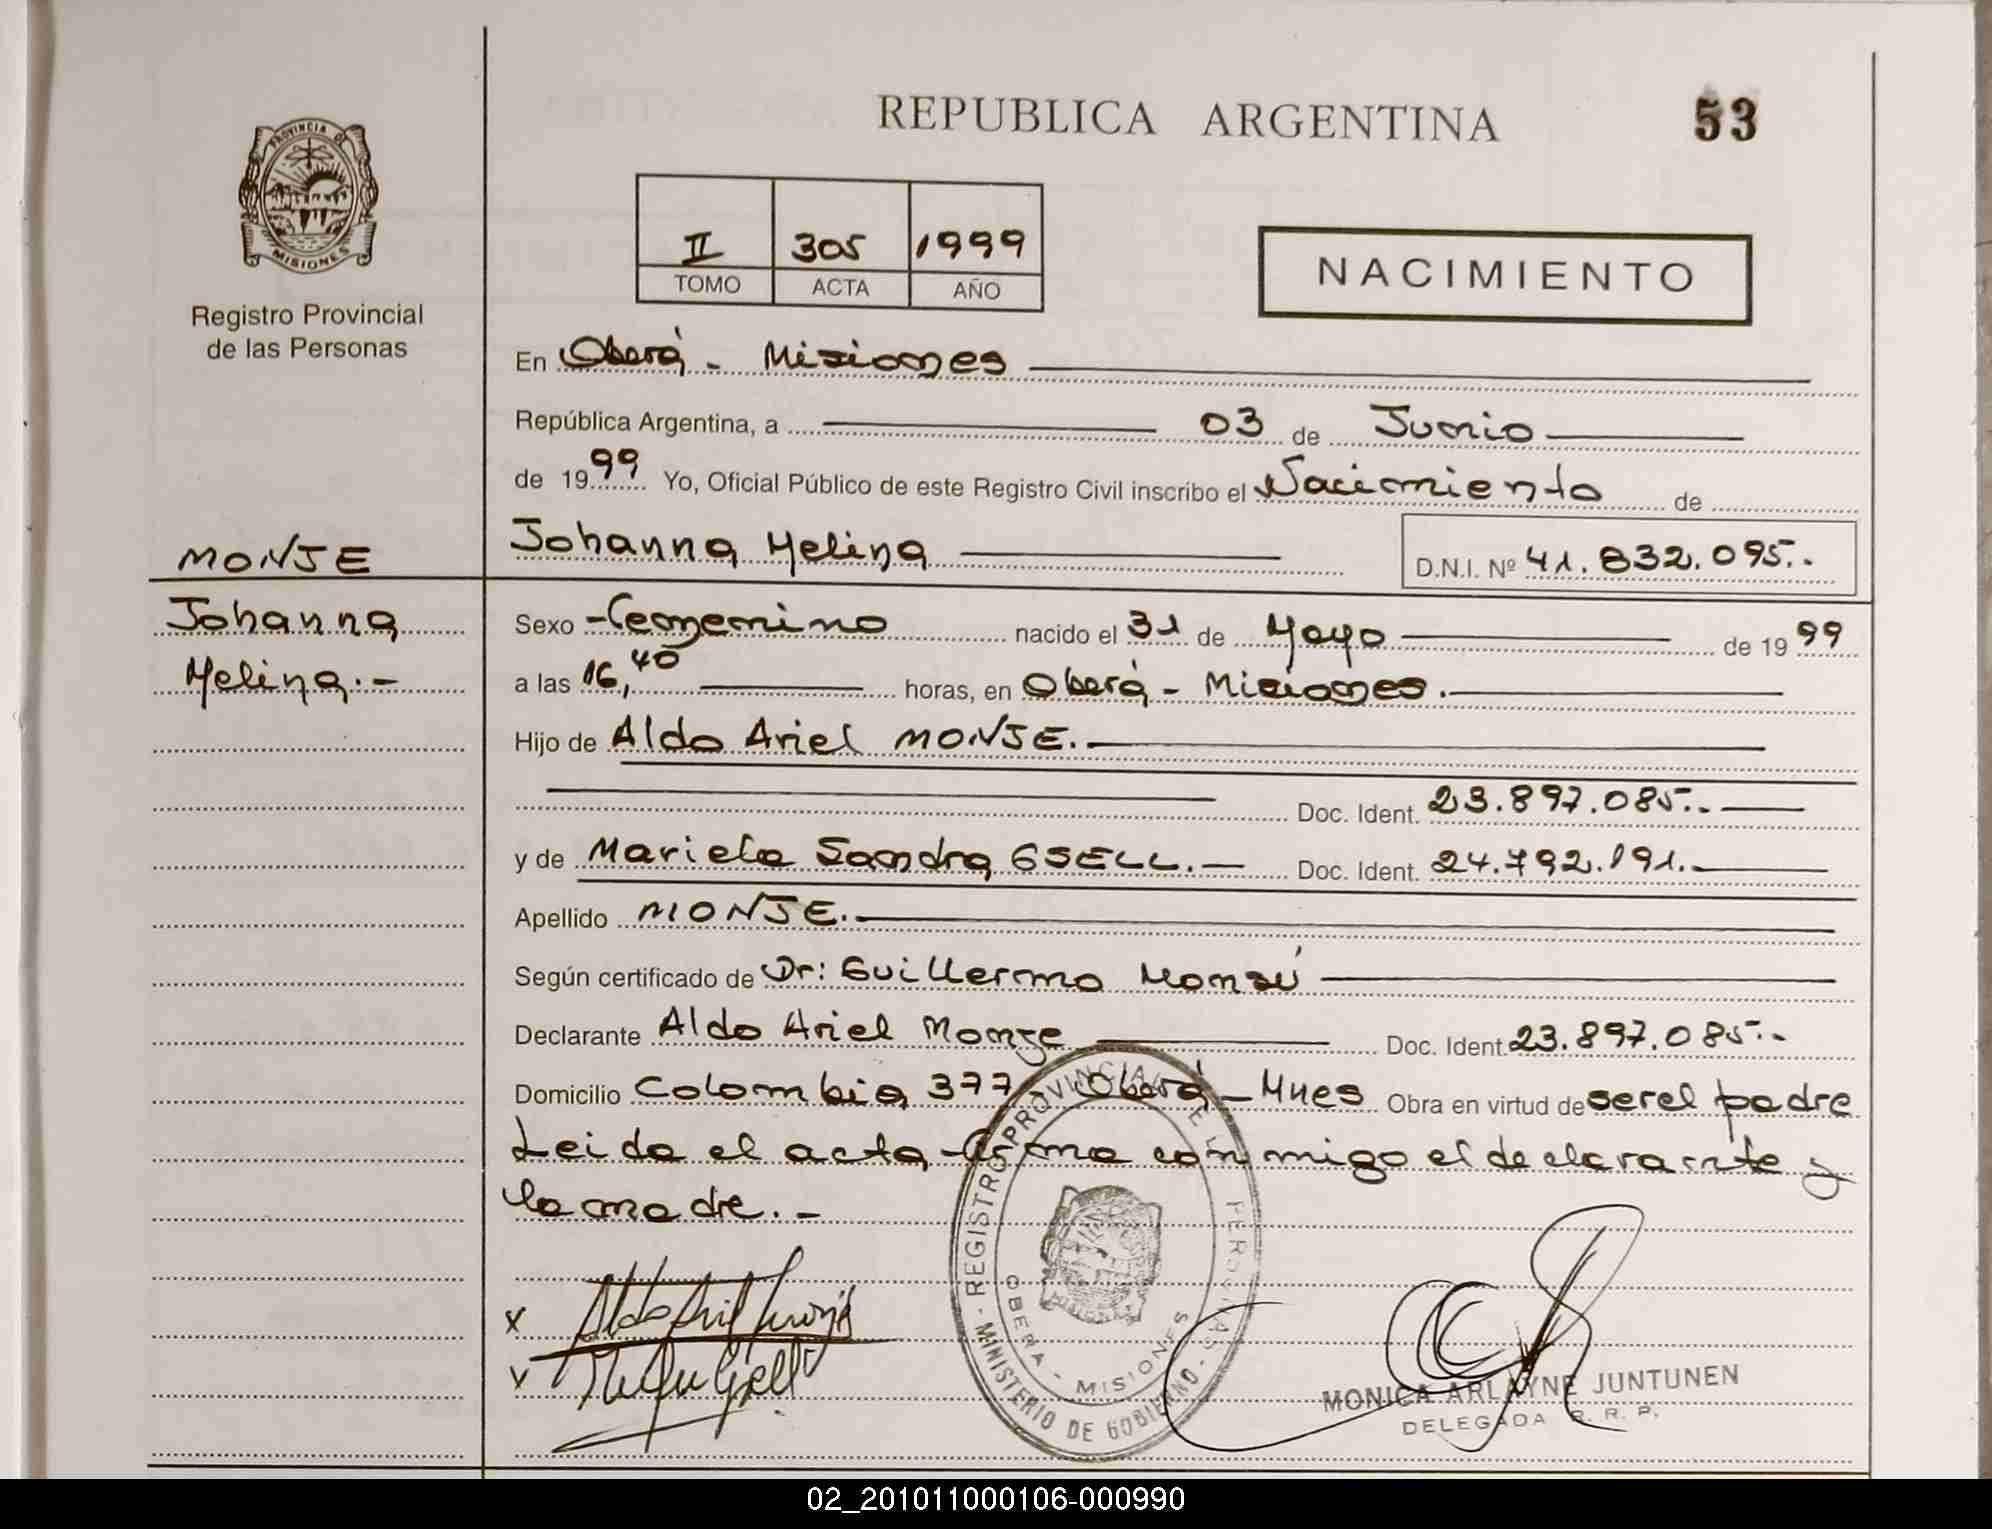 REPUBLICA ARGENTINA
53
PROVINCIA DE
MISIONES
Registro Provincial
de las Personas
II 305 1999
TOMO ACTA AÑO
NACIMIENTO
En Oberá - Misiones
República Argentina, a 03 de Junio
de 1999 Yo, Oficial Público de este Registro Civil inscribo el Nacimiento de
Johanna Melina
D.N.I. Nº 41.832.095.-
MONJE
Johanna
Melina.-
Sexo Femenino nacido el 31 de Mayo de 1999
a las 16,40 horas, en Oberá - Misiones.
Hijo de Aldo Ariel MONJE.
Doc. Ident. 23.897.085.-
y de Mariela Sandra GSELL.- Doc. Ident. 24.792.191.
Apellido MONJE.
Según certificado de Dr: Guillermo Monzú
Declarante Aldo Ariel Monje Doc. Ident. 23.897.085.-
Domicilio Colombia 377 - Oberá - Mnes Obra en virtud de ser el padre
Leida el acta firma conmigo el declarante y
la madre.-
REGISTRO PROVINCIAL DE LAS PERSONAS
MINISTERIO DE GOBIERNO
OBERA - MISIONES
x Aldo Ariel Monje
MONICA ARLAYNE JUNTUNEN
DELEGADA R. R. P.
02_201011000106-000990